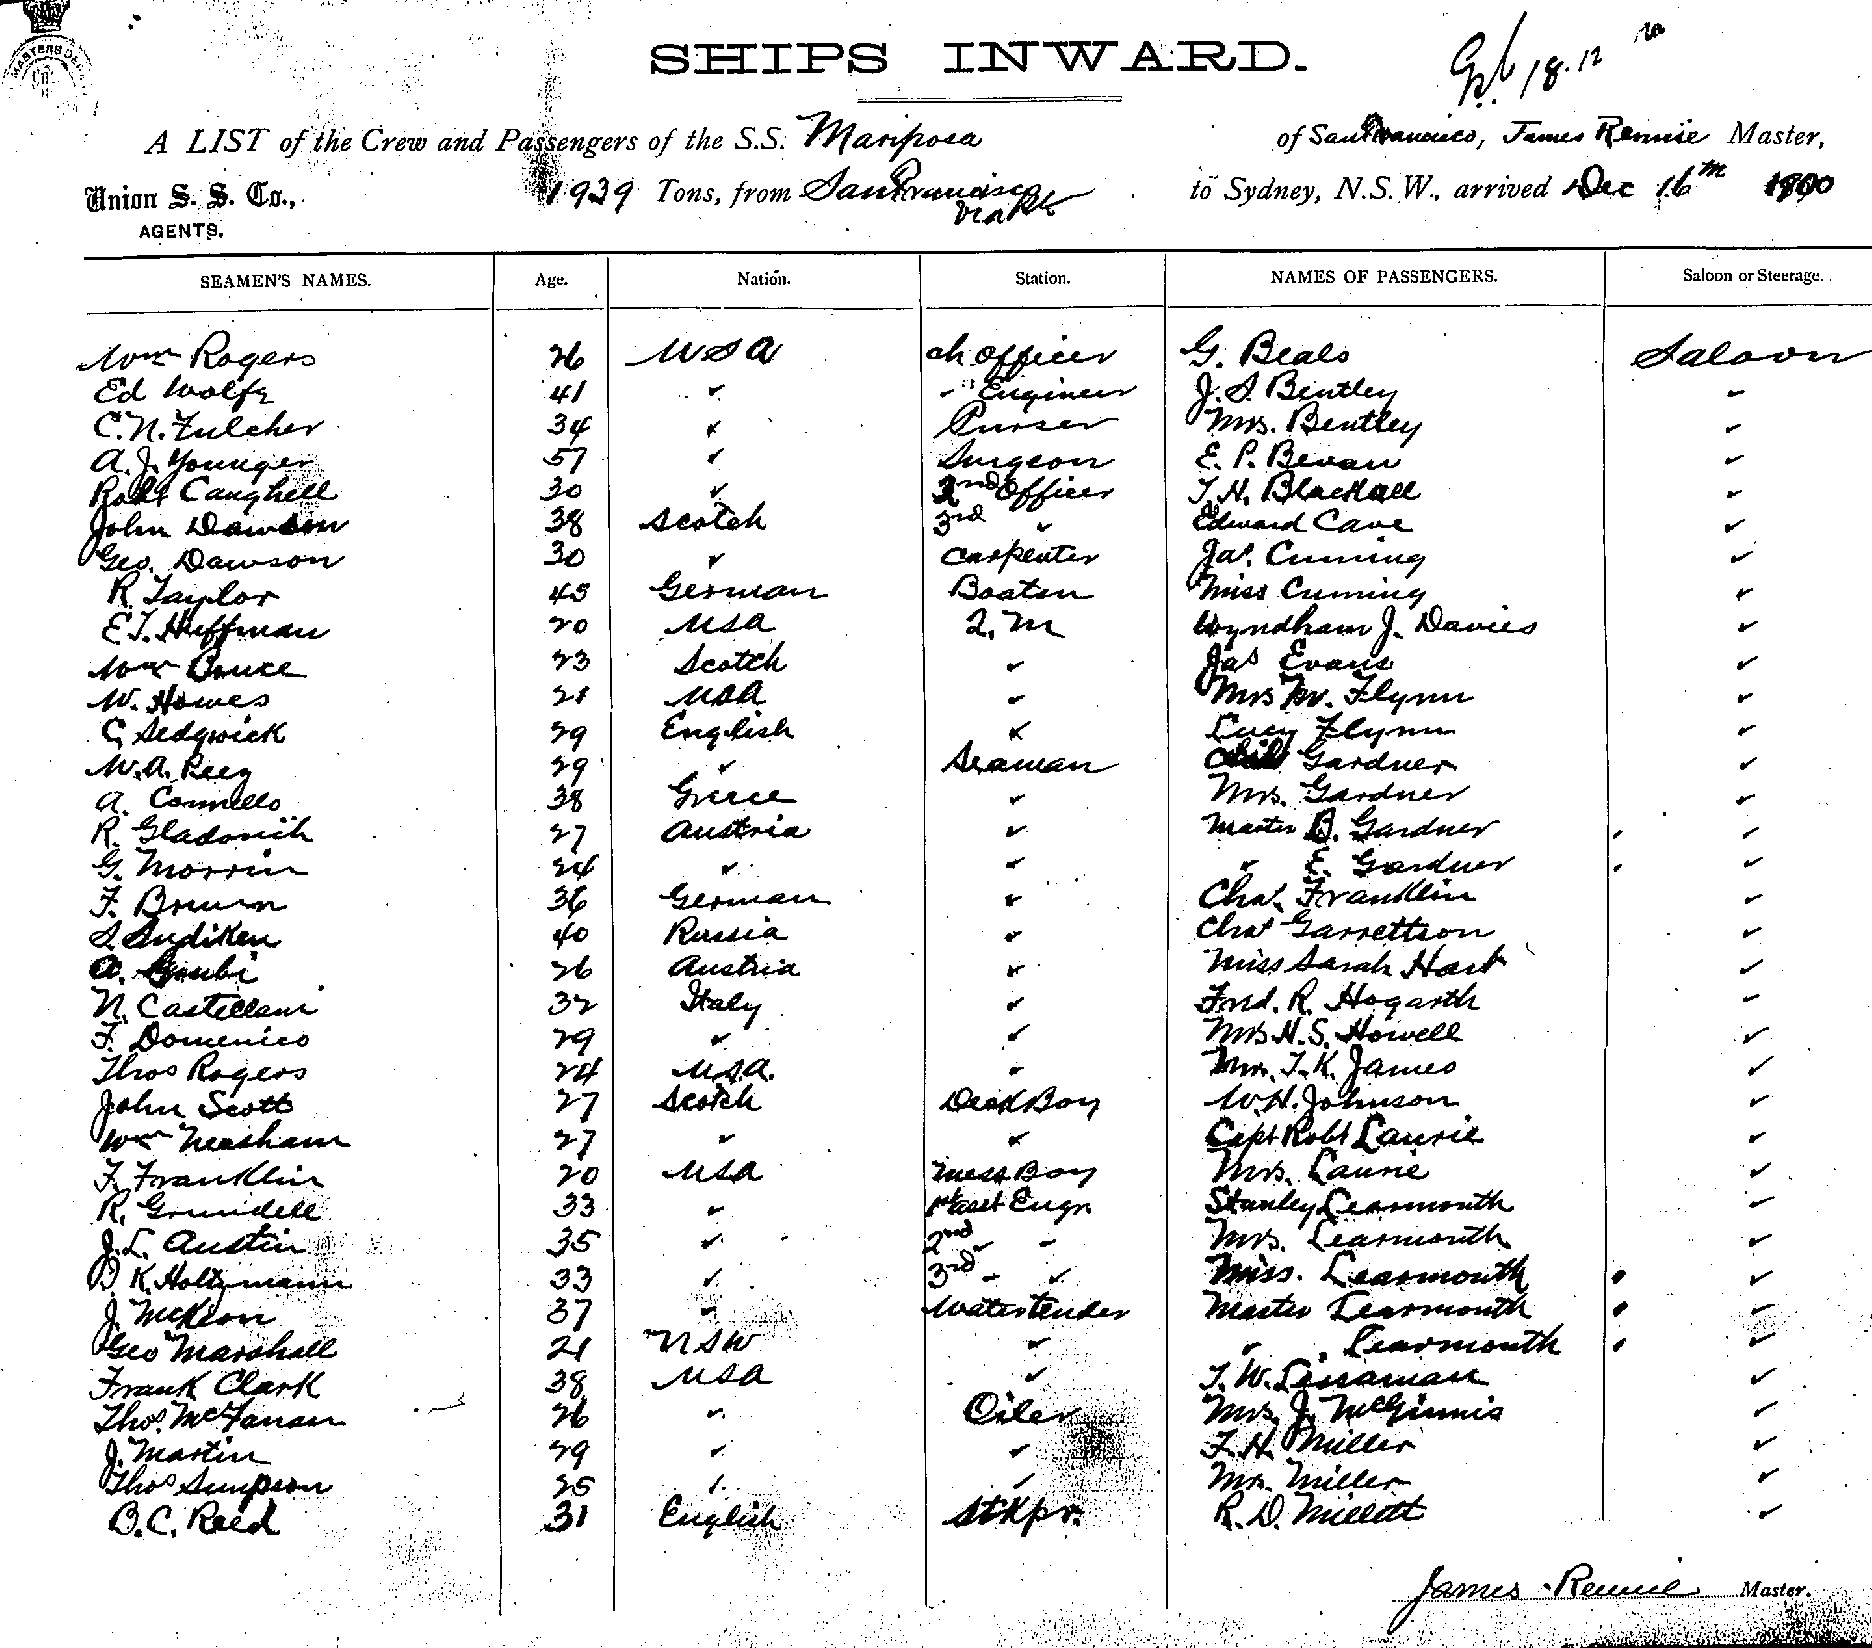 SHIPS INWARD.
18.12
A LIST of the Crew and Passengers of the S.S. Mariposa of San Francisco, James Rennie Master,
Union S. S. Co., 1939 Tons, from San Francisco to Sydney, N.S.W., arrived Dec 16th 1890
AGENTS.
SEAMEN'S NAMES. Age. Nation. Station. NAMES OF PASSENGERS. Saloon or Steerage.
Wm Rogers 26 USA ch officer G. Beals Saloon
Ed Wolfe 41 " " Engineer J. S. Bentley "
C. N. Fulcher 34 " Purser Mrs. Bentley "
A. J. Younger 57 " Surgeon E. P. Bevan "
Robt Caughell 30 " 2nd Officer T. H. Blackall "
John Dawson 38 Scotch 3rd " Edward Cave "
Geo. Dawson 30 " Carpenter Jas. Cuming "
R. Taylor 43 German Boatsn Miss Cuming "
E. T. Huffman 20 USA Q. M Wyndham J. Davies "
Wm Bruce 23 Scotch " Jas Evans "
W. Howes 21 USA " Mrs M. Flynn "
C. Sedgwick 29 English " Lucy Flynn "
W. A. 29 " Seaman Gardner "
A. Connello 38 Greece " Mrs. Gardner "
R. Gladonich 27 Austria " Master B. Gardner "
G. Morrin 24 " " " E. Gardner "
F. Brown 36 German " Chas. Franklin "
S. Sudiken 40 Russia " Chas Garrettson "
A. 26 Austria " Miss Sarah Hart "
N. Castellani 32 Italy " Fred. R. Hogarth "
F. Domenico 29 " " Mrs H. S. Howell "
Thos Rogers 24 U.S.A. " Mrs. T. K. James "
John Scott 27 Scotch Deck Boy W. H. Johnson "
Wm Neasham 27 " " Capt Robt Laurie "
F. Franklin 20 USA Mess Boy Mrs. Laurie "
R. Grundell 33 " 1st asst Engr. Stanley Learmonth "
J. L. Austin 35 " 2nd " " Mrs. Learmonth "
D. K. Holtzmann 33 " 3rd " " Miss. Learmonth "
J. McKeon 37 " Watertender Master Learmonth "
Geo Marshall 21 NSW " " Learmonth "
Frank Clark 38 USA " T. W. Lissaman "
Thos. McFanan 26 " Oiler Mrs J. McGinnis "
J. Martin 29 " " F. H. Miller "
Thos Simpson 25 " " Mrs. Miller "
B. C. Reed 31 English Stkpr. R. D. Millett "
James Rennie Master.